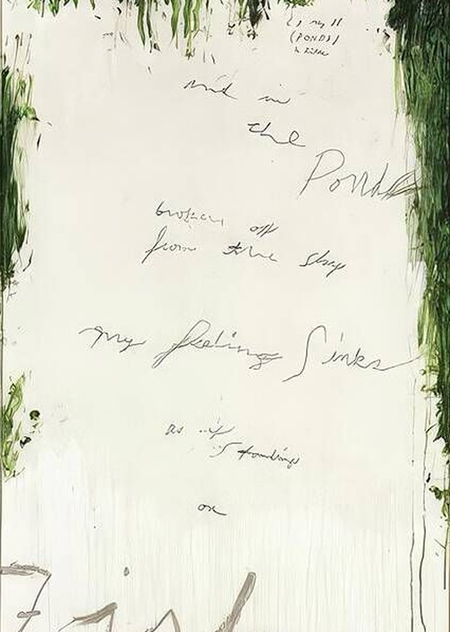 (PONDS)
and in
the
Ponds
broken off
from the sky
my feeling sinks
as if
standing
on